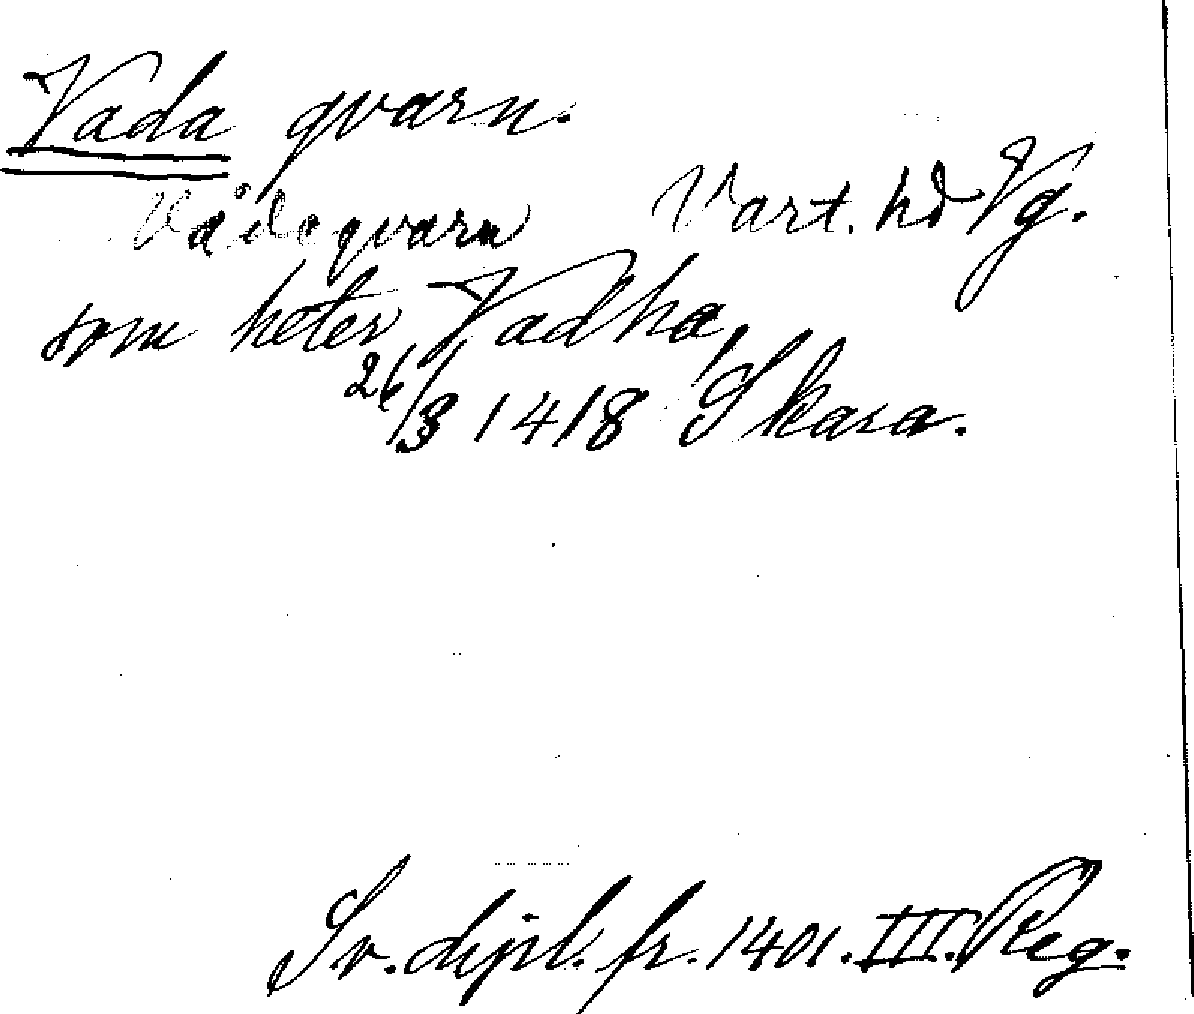 Vada qvarn.
Vådeqvarn Vart. hd Vg.
som heter Vadha,
26/3 1418 Skara.
Sv. dipl. fr. 1401. III. Reg.